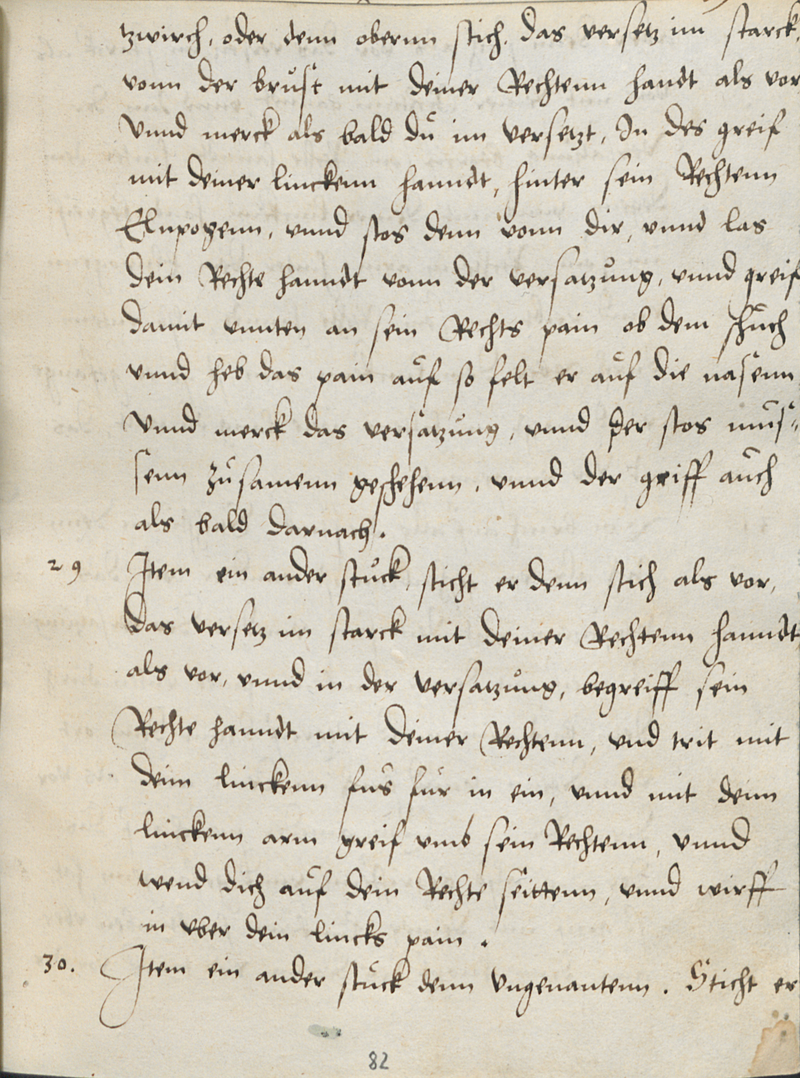 tzwirch, oder denn obernn stich. das versetz im starck,
vonn der brust mit deiner Rechtenn handt als vor
Vnnd merck als bald du im versetzt, In des greif
mit deiner linckenn hanndt, hinter sein Rechtenn
Elnpogenn, vnnd stos denn vonn dir, vnnd las
dein Rechte hanndt vonn der versatzung, vnnd greif
damit vnnten an sein Rechts pain ob dem schuch
vnnd heb das pain auf so felt er auf die nasenn
Vnnd merck das versatzung, vnnd der stos mus-
senn zusamenn geschehenn, vnnd der griff auch
als bald darnach.
29 Item ein ander stuck, sticht er denn stich als vor,
das versetz im starck mit deiner Rechtenn hanndt
als vor, vnnd in der versatzung, begreiff sein
Rechte hanndt mit deiner Rechtenn, vnd trit mit
deim linckenn fus fur in ein, vnnd mit denn
linckenn arm greif vmb sein Rechtenn, vnnd
wend dich auf dein Rechte seittenn, vnnd wirff
in vber dein lincks pain.
30. Item ein ander stuck denn vngenantenn. Sticht er
82